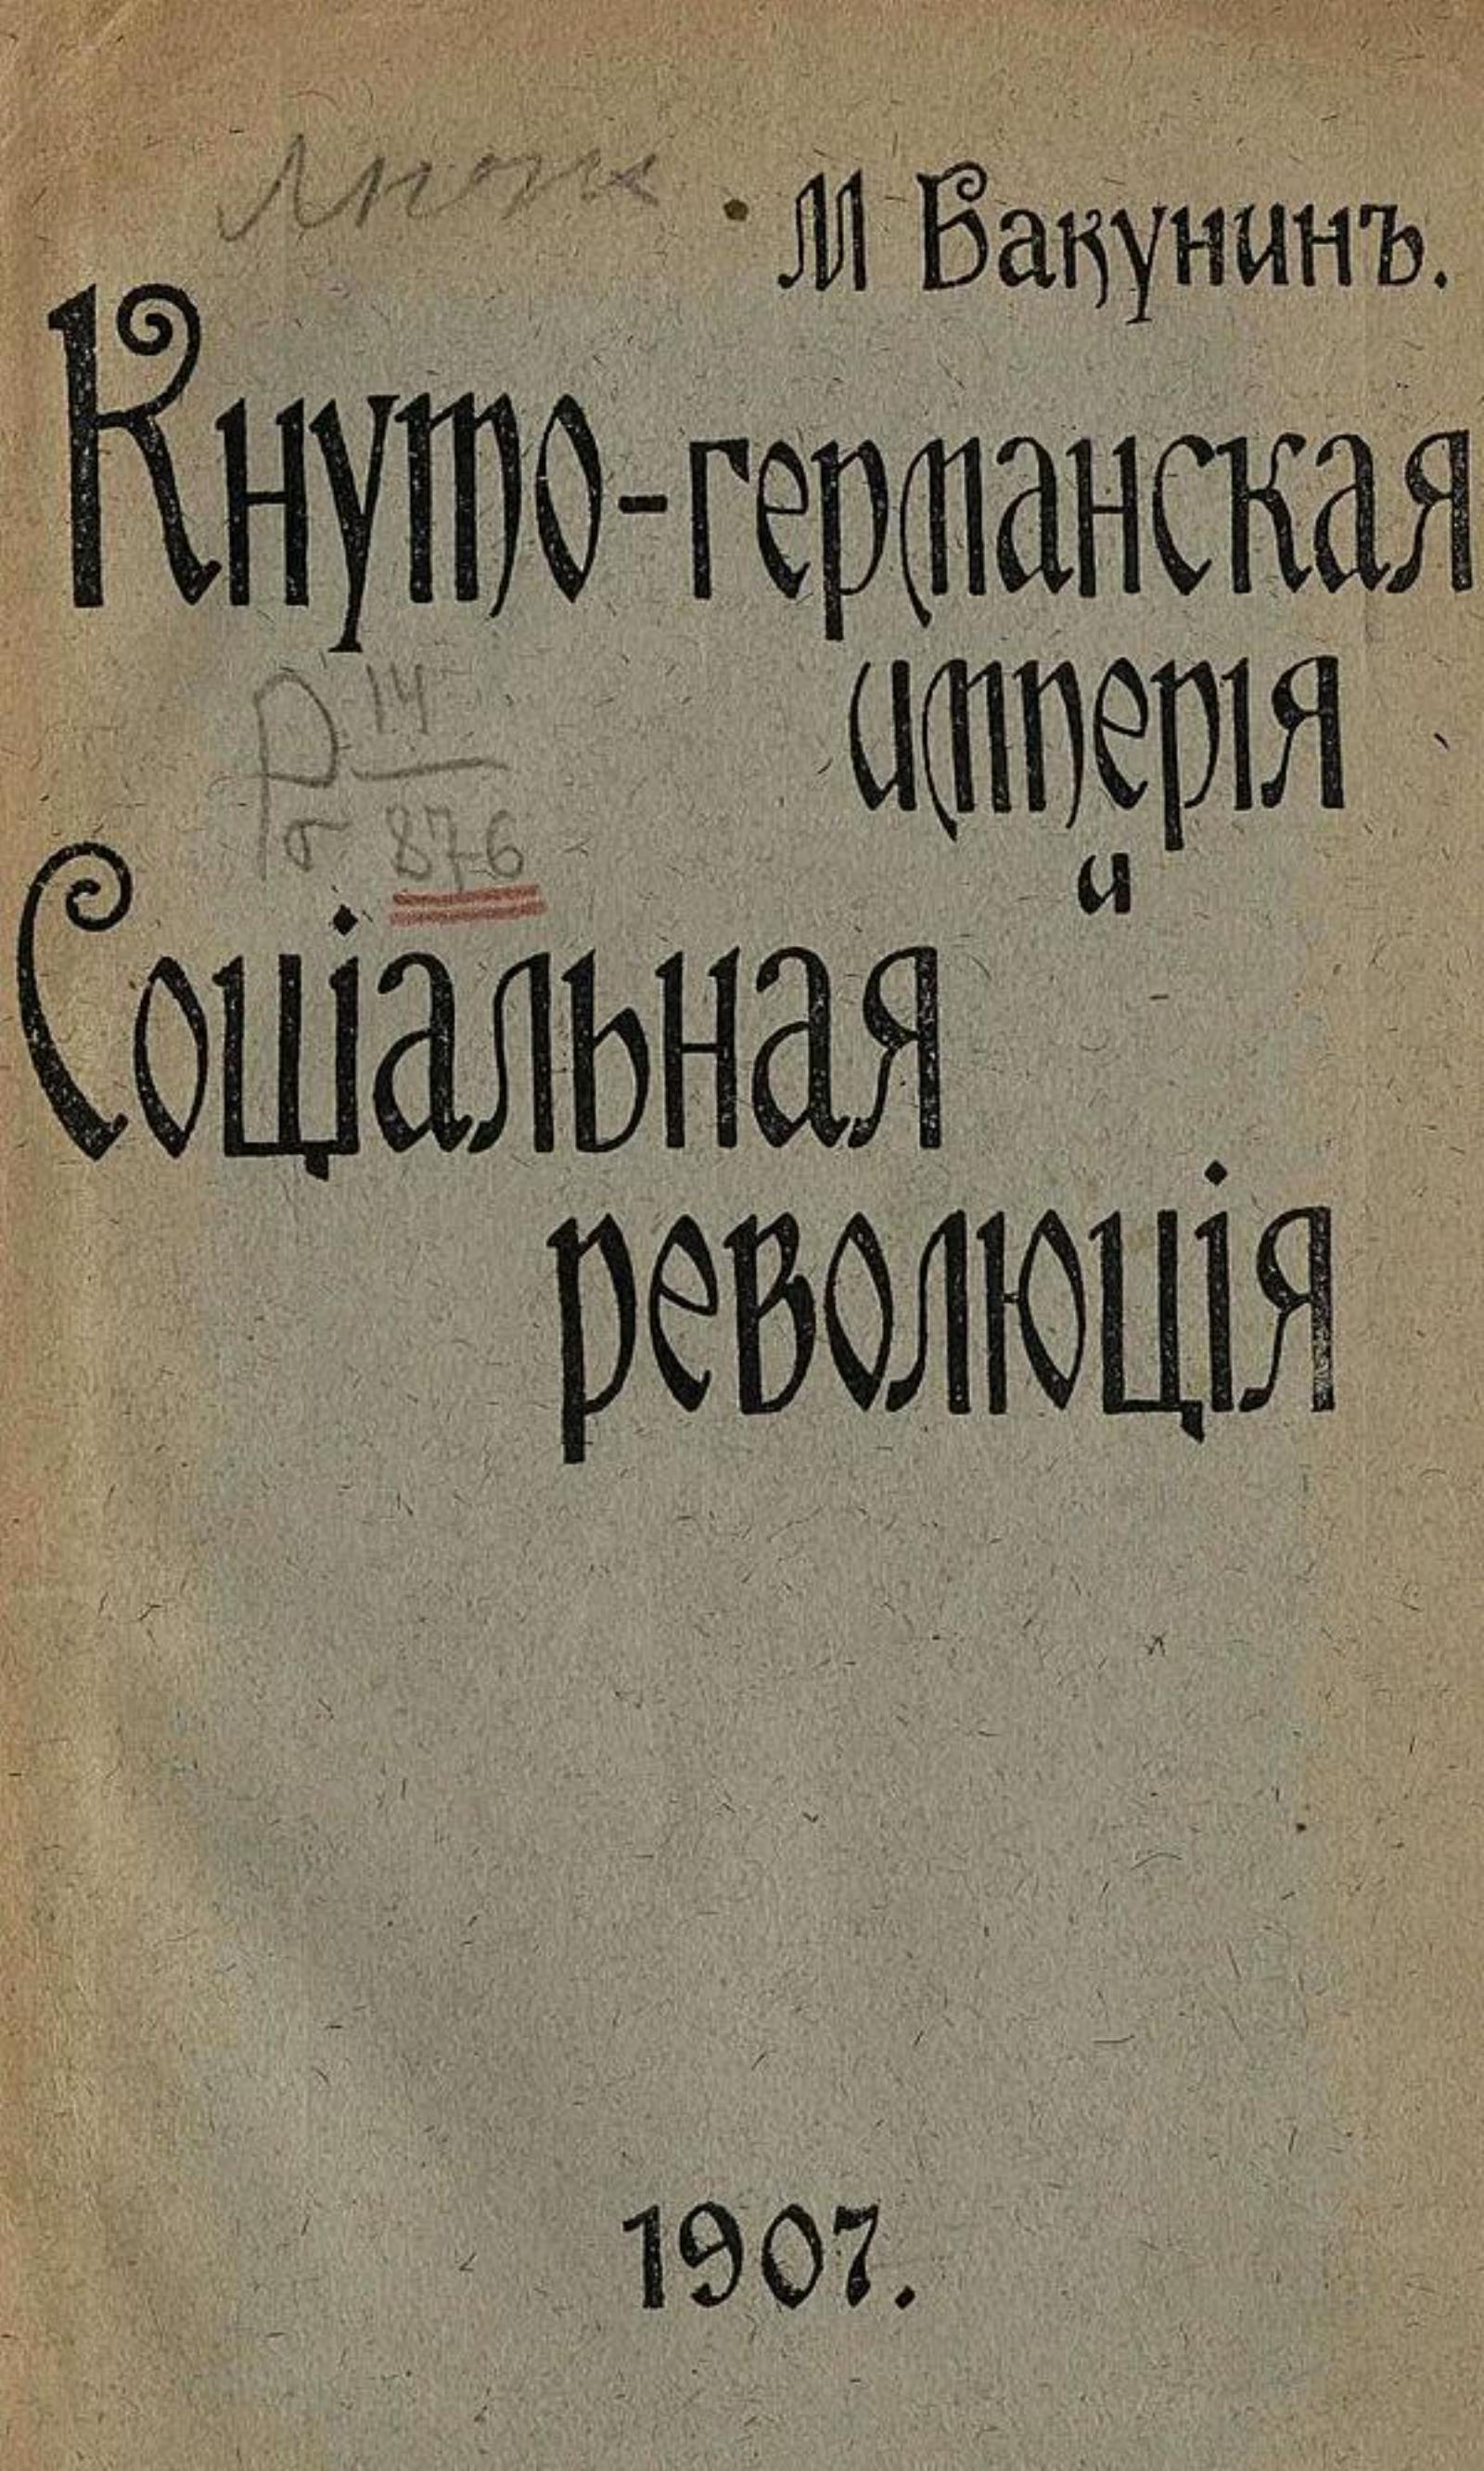 М Бакунинъ.
Кнуто-германская
имперія
и
Р 14
б 876
Соціальная
революція
1907.